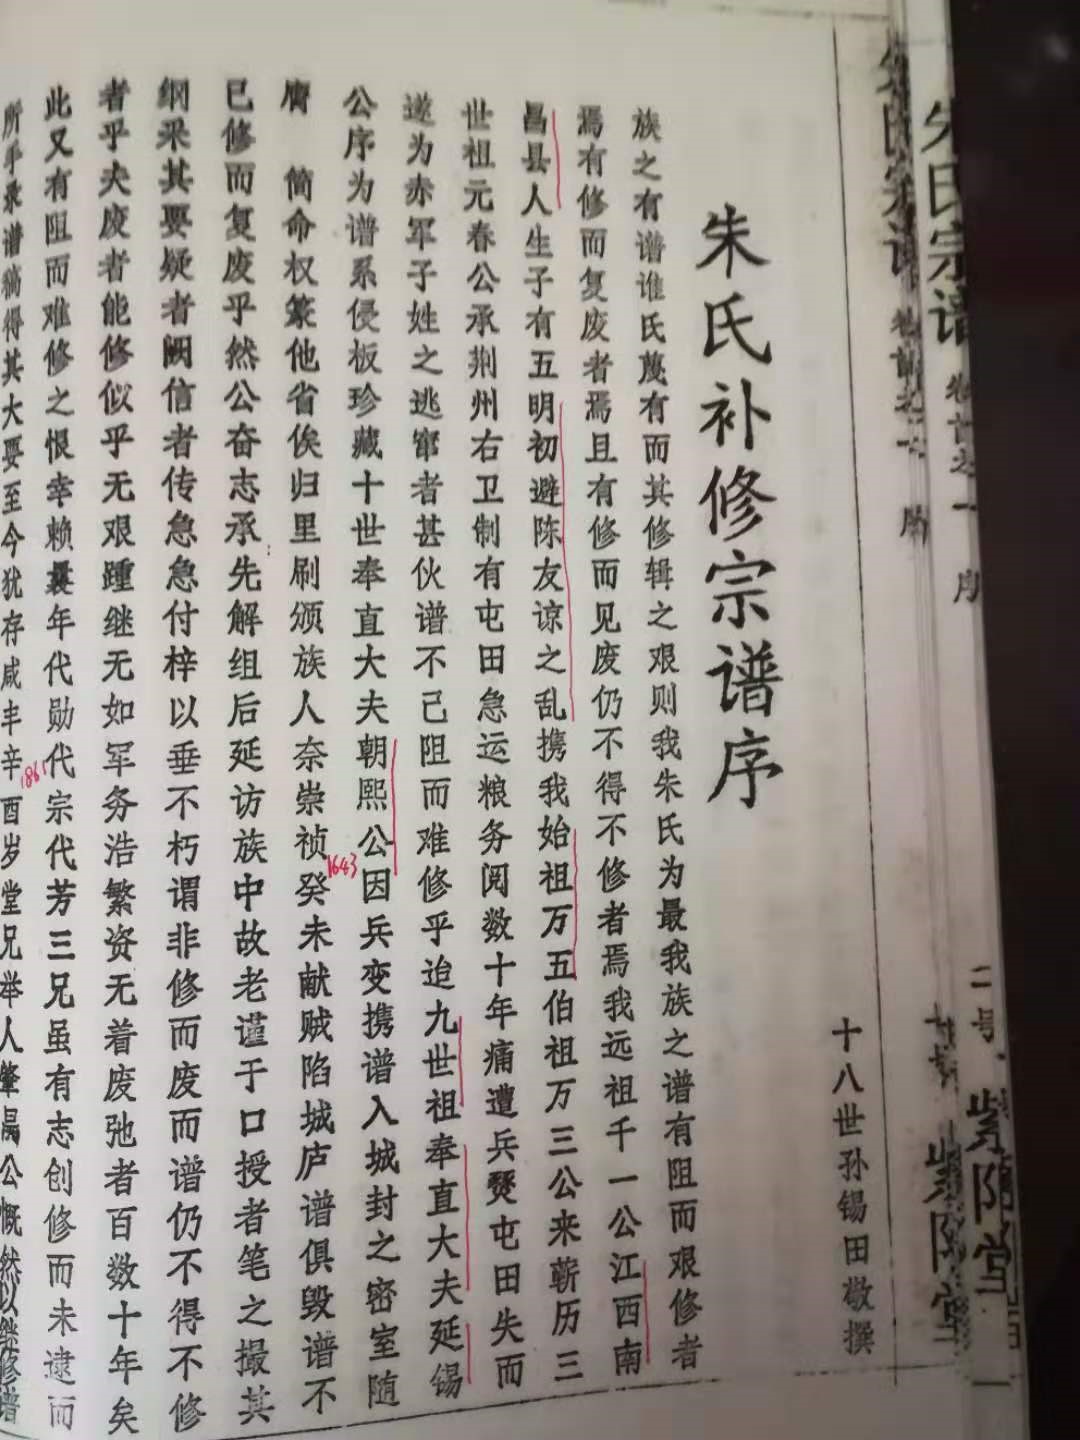 朱氏宗谱
卷首之一
序
二号
紫阳堂
十八世孙锡田敬撰
朱氏补修宗谱序
族之有谱谁氏蔑有而其修辑之艰则我朱氏为最我族之谱有阻而艰修者
焉有修而复废者焉且有修而见废仍不得不修者焉我远祖千一公江西南
昌县人生子有五明初避陈友谅之乱携我始祖万五伯祖万三公来蕲历三
世祖元春公承荆州右卫制有屯田急运粮务阅数十年痛遭兵燹屯田失而
遂为赤军子姓之逃窜者甚伙谱不已阻而难修乎迨九世祖奉直大夫延锡
公序为谱系侵板珍藏十世奉直大夫朝熙公因兵变携谱入城封之密室随
膺 简命权篆他省俟归里刷颁族人奈崇祯癸未献贼陷城庐谱俱毁谱不
1643
已修而复废乎然公奋志承先解组后延访族中故老谨于口授者笔之撮其
纲采其要疑者阙信者传急急付梓以垂不朽谓非修而废而谱仍不得不修
者乎夫废者能修似乎无艰踵继无如军务浩繁资无着废弛者百数十年矣
此又有阻而难修之恨幸赖曩年代勋代宗代芳三兄虽有志创修而未逮而
所手录谱稿得其大要至今犹存咸丰辛酉岁堂兄举人肇昺公慨然以继修谱
1861